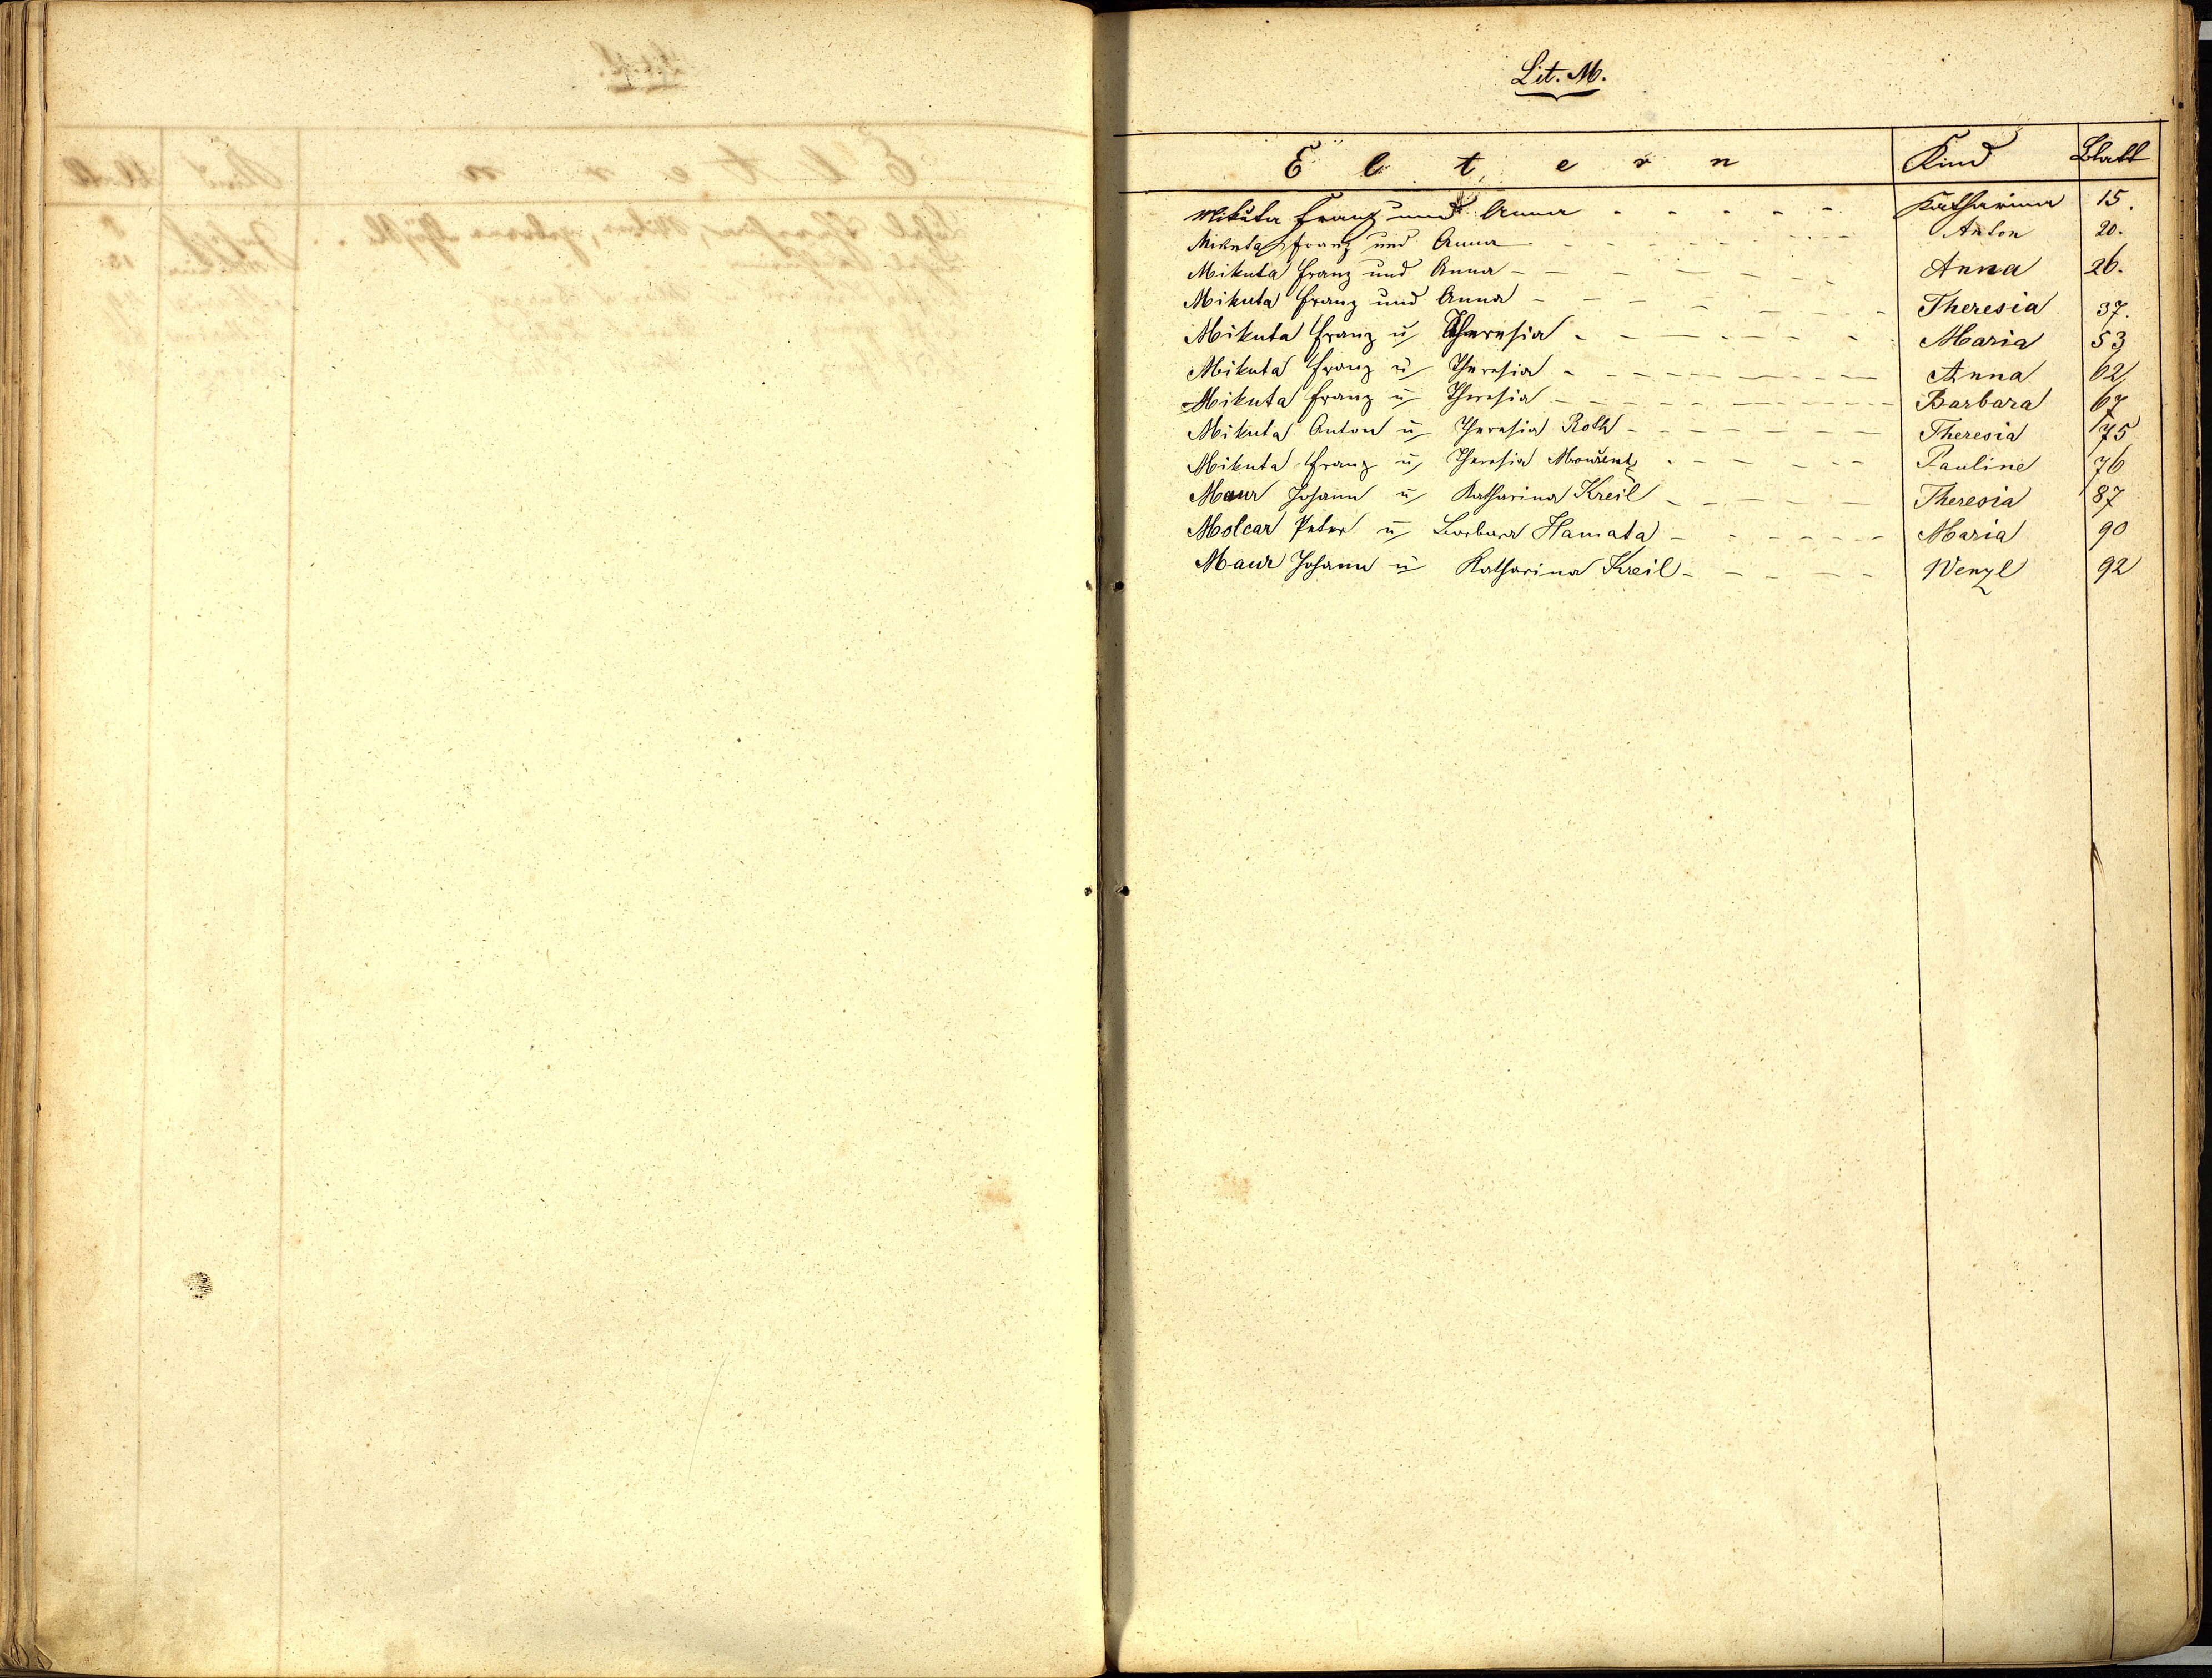 Lit. M.
Eltern Kind Blatt
Mikuta Franz und Anna - - - - - - Katharina 15.
Mikuta Franz und Anna - - - - - - Anton 20.
Mikuta Franz und Anna - - - - - - Anna 26.
Mikuta Franz und Anna - - - - - - Theresia 37.
Mikuta Franz u Theresia - - - - - - Maria 53
Mikuta Franz u Theresia - - - - - - Anna 62
Mikuta Franz u Theresia - - - - - - Barbara 67
Mikuta Anton u Theresia Roth - - - - - - Theresia 75
Mikuta Franz u Theresia - - - - - - Pauline 76
Maur Johann u Katharina Kreil - - - - - Theresia 87
Molcar Peter u Barbara Hamata - - - - - - Maria 90
Maur Johann u Katharina Kreil - - - - - Wenzl 92